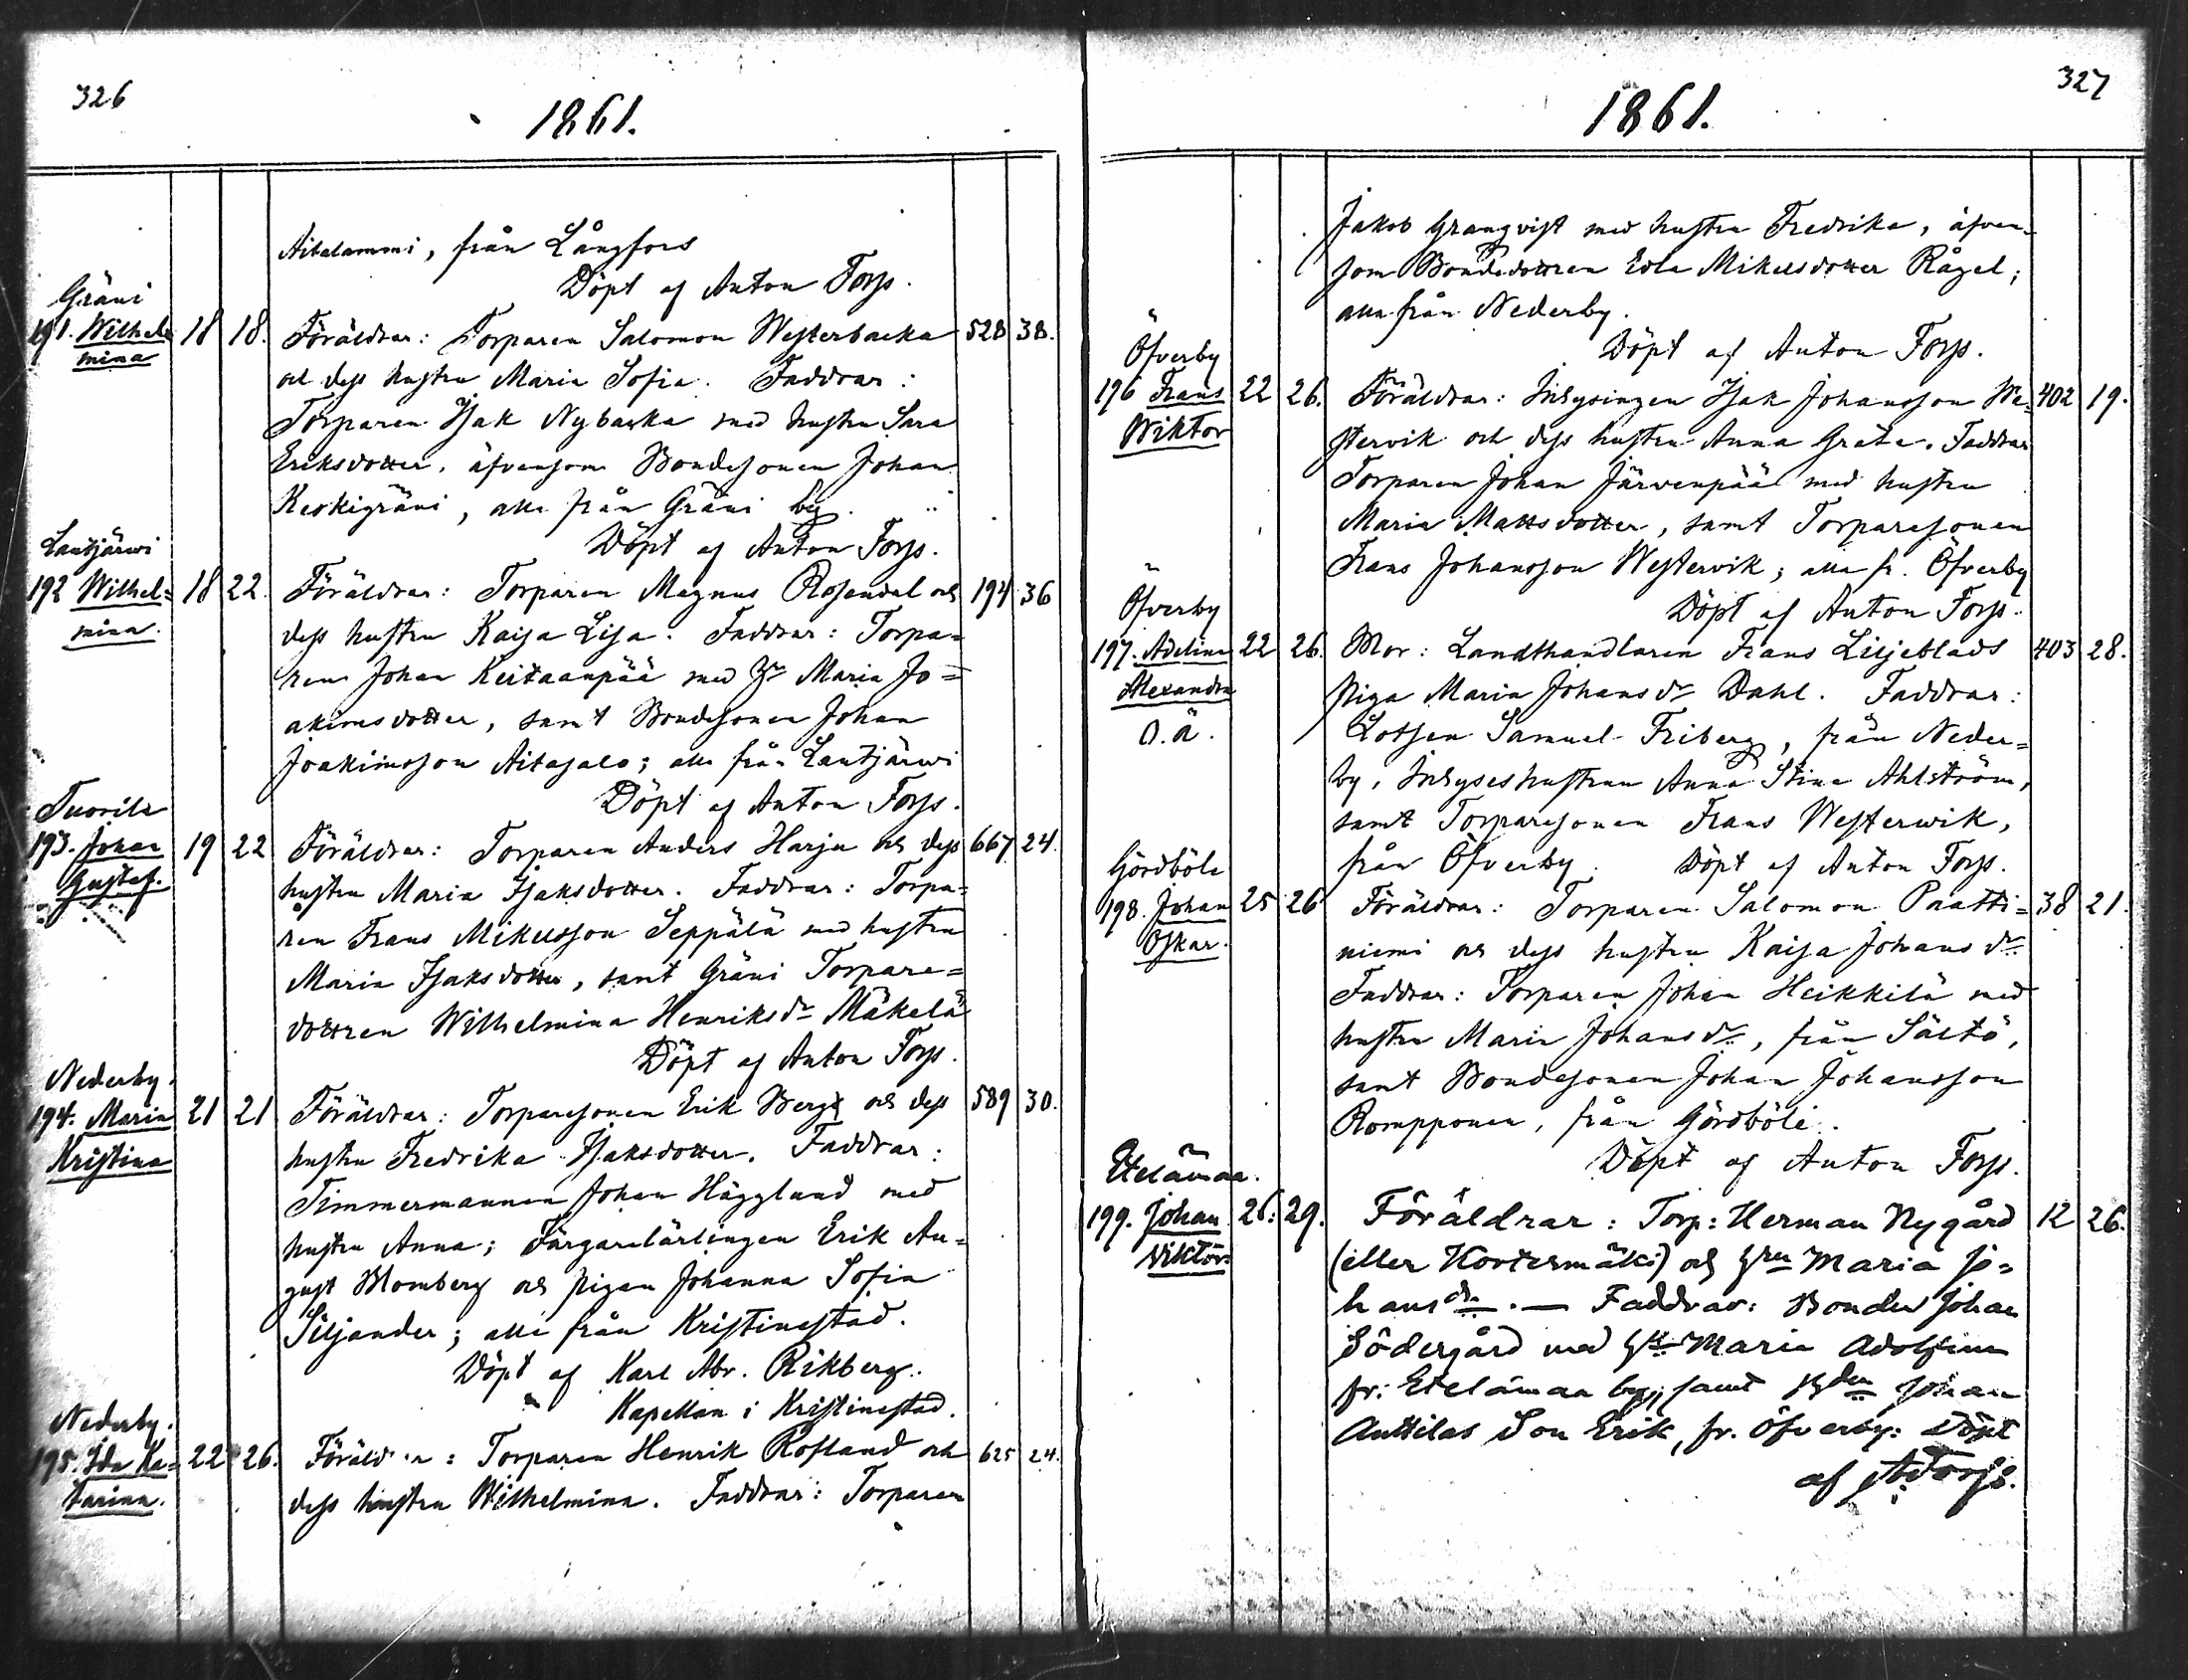 326
1861.
Aitalammi, från Långfors
Döpt af Anton Forss.
Gräni
191. Wilhel- 18 18. Föräldrar: Torparen Salomon Westerbacka 528 38.
mina
och dess hustru Maria Sofia. Faddrar:
Torparen Isak Nybacka med hustru Sara
Eriksdotter, äfvensom Bondesonen Johan
Keskigräni, alla från Gräni by.
Döpt af Anton Forss.
Lautjärwi
192 Wilhel= 18 22. Föräldrar: Torparen Magnus Rosendal och 194 36
mina.
dess hustru Kaisa Lisa. Faddrar: Torpa=
ren Johan Keitaanpää med h:u Maria Jo=
akimsdotter, samt Bondesonen Johan
Joakimsson Aitasalo; alla från Lautjärwi
Döpt af Anton Forss.
Tuorila
193. Johan 19 22 Föräldrar: Torparen Anders Harju och dess 667 24.
Gustaf.
hustru Maria Isaksdotter. Faddrar: Torpa=
ren Frans Mikelsson Seppälä med hustru
Maria Isaksdotter, samt Gräni Torpare=
dottren Wilhelmina Henriksdr Mäkelä
Döpt af Anton Forss.
Nederby.
194. Maria 21 21 Föräldrar: Torparesonen Erik Berg och dess 589 30.
Kristina
hustru Fredrika Isaksdotter. Faddrar:
Timmermannen Johan Hägglund med
hustru Anna; Färgarelärlingen Erik Au=
gust Blomberg och pigan Johanna Sofia
Siljander; alla från Kristinestad.
Döpt af Karl Abr. Rikberg.
Kapellan i Kristinestad.
Nederby.
195. Ida Ka= 22 26. Föräldrar: Torparen Henrik Rosland och 625 24.
tarina.
dess hustru Wilhelmina. Faddrar: Torparen
327
1861.
Jakob Granqvist med hustru Fredrika, äfven-
som Bondedottren Eva Mikelsdotter Rågel;
alla från Nederby.
Döpt af Anton Forss.
Öfverby
196 Frans 22 26. Föräldrar: Inhysingen Isak Johansson We- 402 19.
Wiktor
stervik och dess hustru Anna Greta. Faddrar
Torparen Johan Järvenpää med hustru
Maria Mattsdotter, samt Torparesonen
Frans Johansson Westervik; alla fr. Öfverby
Döpt af Anton Forss.
Öfverby
197. Adelina 22 26. Mor: Landthandlaren Frans Liljeblads 403 28.
Alexandra
piga Maria Johansdr Dahl. Faddrar:
O.ä.
Lotsen Samuel Friberg, från Neder=
by, Inhyseshustrun Anna Stina Ahlström,
samt Torparesonen Frans Westerwik,
från Öfverby. Döpt af Anton Forss.
Gördböle
198. Johan 25 26 Föräldrar: Torparen Salomon Paatti= 38 21.
Oskar.
niemi och dess hustru Kaisa Johansdr
Faddrar: Torparen Johan Heikkilä med
hustru Maria Johansdr, från Sältö,
samt Bondesonen Johan Johansson
Rompponen, från Gördböle.
Döpt af Anton Forss.
Etelämaa.
199. Johan 26. 29. Föräldrar: Torp: Herman Nygård 12 26.
Viktor.
(eller Kortesmäki) och h:ru Maria Jo=
hansdr. — Faddrar: Bonden Johan
Södergård med h:u Maria Adolfina
fr: Etelämaa by; samt B:den Johan
Anttilas Son Erik, fr. Öfverby: Döpt
af A: Forss.